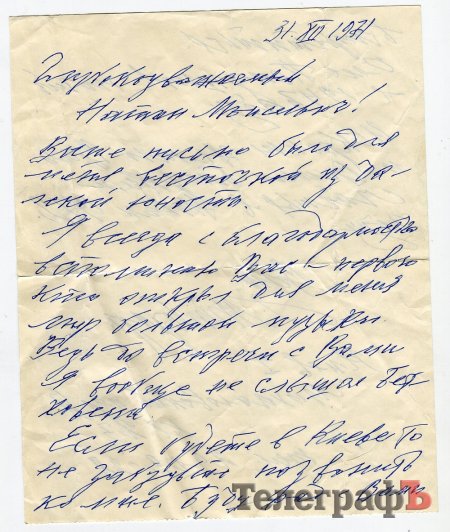 31.XII 1971
Глубокоуважаемый
Натан Моисеевич!
Ваше письмо было для
меня весточкой из да-
лекой юности.
Я всегда с благодарностью
вспоминаю Вас – первого
кто открыл для меня
мир большой музыки.
Ведь до встречи с Вами
Я вообще не слышал Бет
ховена
Если будете в Киеве то
не забудьте позвонить
ко мне. Буду
ТелеграфЪ